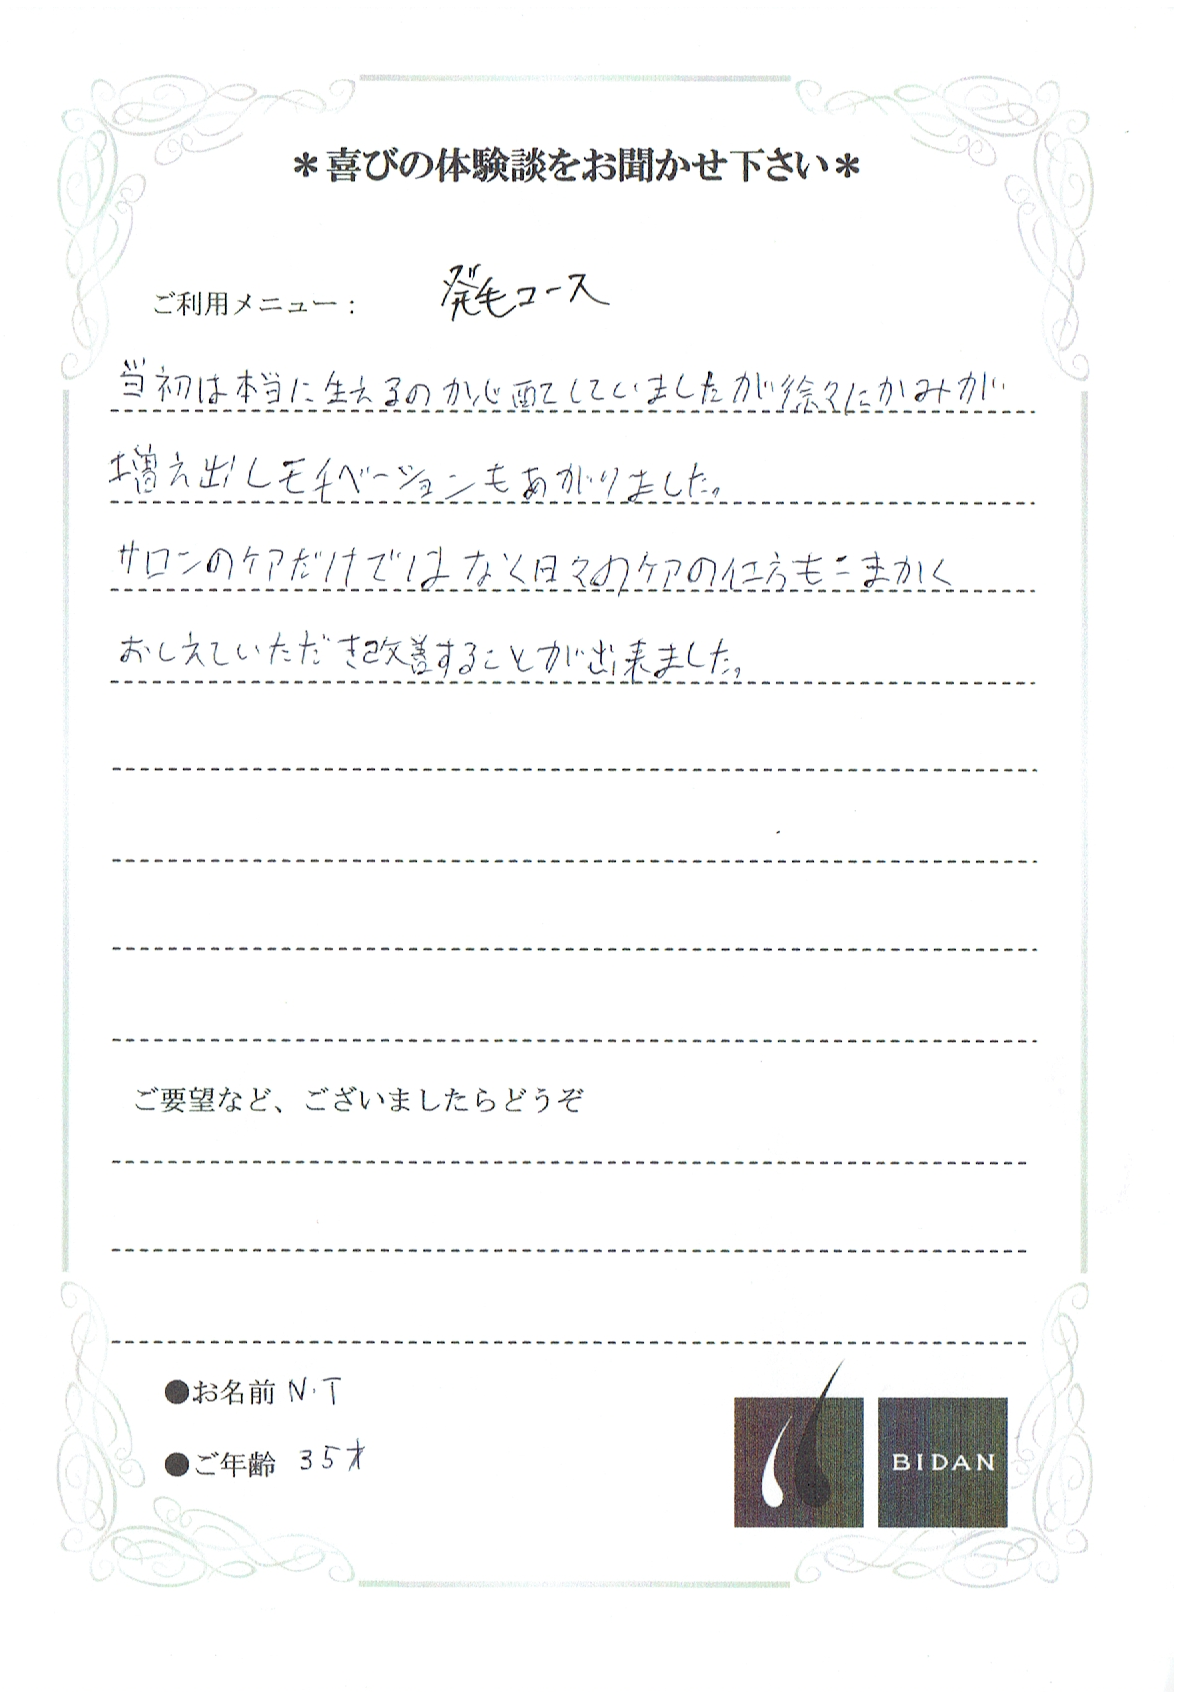 ＊喜びの体験談をお聞かせ下さい＊
ご利用メニュー： 発毛コース
当初は本当に生えるのか心配してていましたが徐々にかみが
増え出しモチベーションもあがりました。
サロンのケアだけではなく日々のケアの仕方もこまかく
おしえていただき改善することが出来ました。
ご要望など、ございましたらどうぞ
●お名前 N.T
●ご年齢 35才
BIDAN